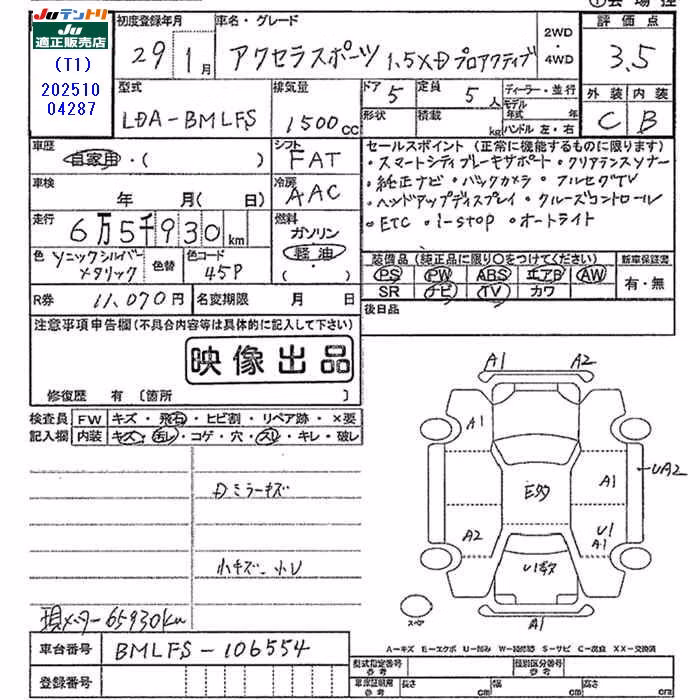 Juテントリ
Ju適正販売店
(T1)
202510
04287
初度登録年月 29 1月
車名・グレード アクセラスポーツ 1.5XD プロアクティブ
2WD・4WD
評価点 3.5
型式 LDA-BMLFS
排気量 1500cc
ドア 5
定員 5人
形状
積載 kg
ディーラー・並行
モデル年式 年式
ハンドル 左・右
外装 C
内装 B
車歴 自家用・( )
シフト FAT
車検 年 月(日)
冷房 AAC
走行 6万5千930km
燃料 ガソリン 軽油 ( )
色 ソニックシルバーメタリック
色替
色コード 45P
R券 11,070円
名変期限 月 日
セールスポイント(正常に機能するものに限ります)
・スマートシティブレーキサポート・クリアランスソナー
・純正ナビ・バックカメラ・フルセグTV
・ヘッドアップディスプレイ・クルーズコントロール
・ETC・i-stop・オートライト
装備品(純正品に限り○をつけてください)
新車保証書
PS PW ABS エアB AW
有・無
SR ナビ TV カワ
後日品
注意事項申告欄(不具合内容等は具体的に記入して下さい)
映像出品
修復歴 有〔箇所 〕
検査員記入欄
FW キズ・飛石・ヒビ割・リペア跡・×要
内装 キズ・汚レ・コゲ・穴・スリ・キレ・破レ
Dミラーキズ
小キズ、小U
現メーター65930km
A1 A2
A1
UA2
A1
Eタタ
A2
U1
A1
A1
スペア
A=キズ E=エクボ U=凹み W=補修跡 S=サビ C=腐食 XX=交換済
車台番号 BMLFS-106554
登録番号
型式指定番号 参考
類別区分番号 参考
車庫証明用 参考 長さ cm 幅 cm 高さ cm